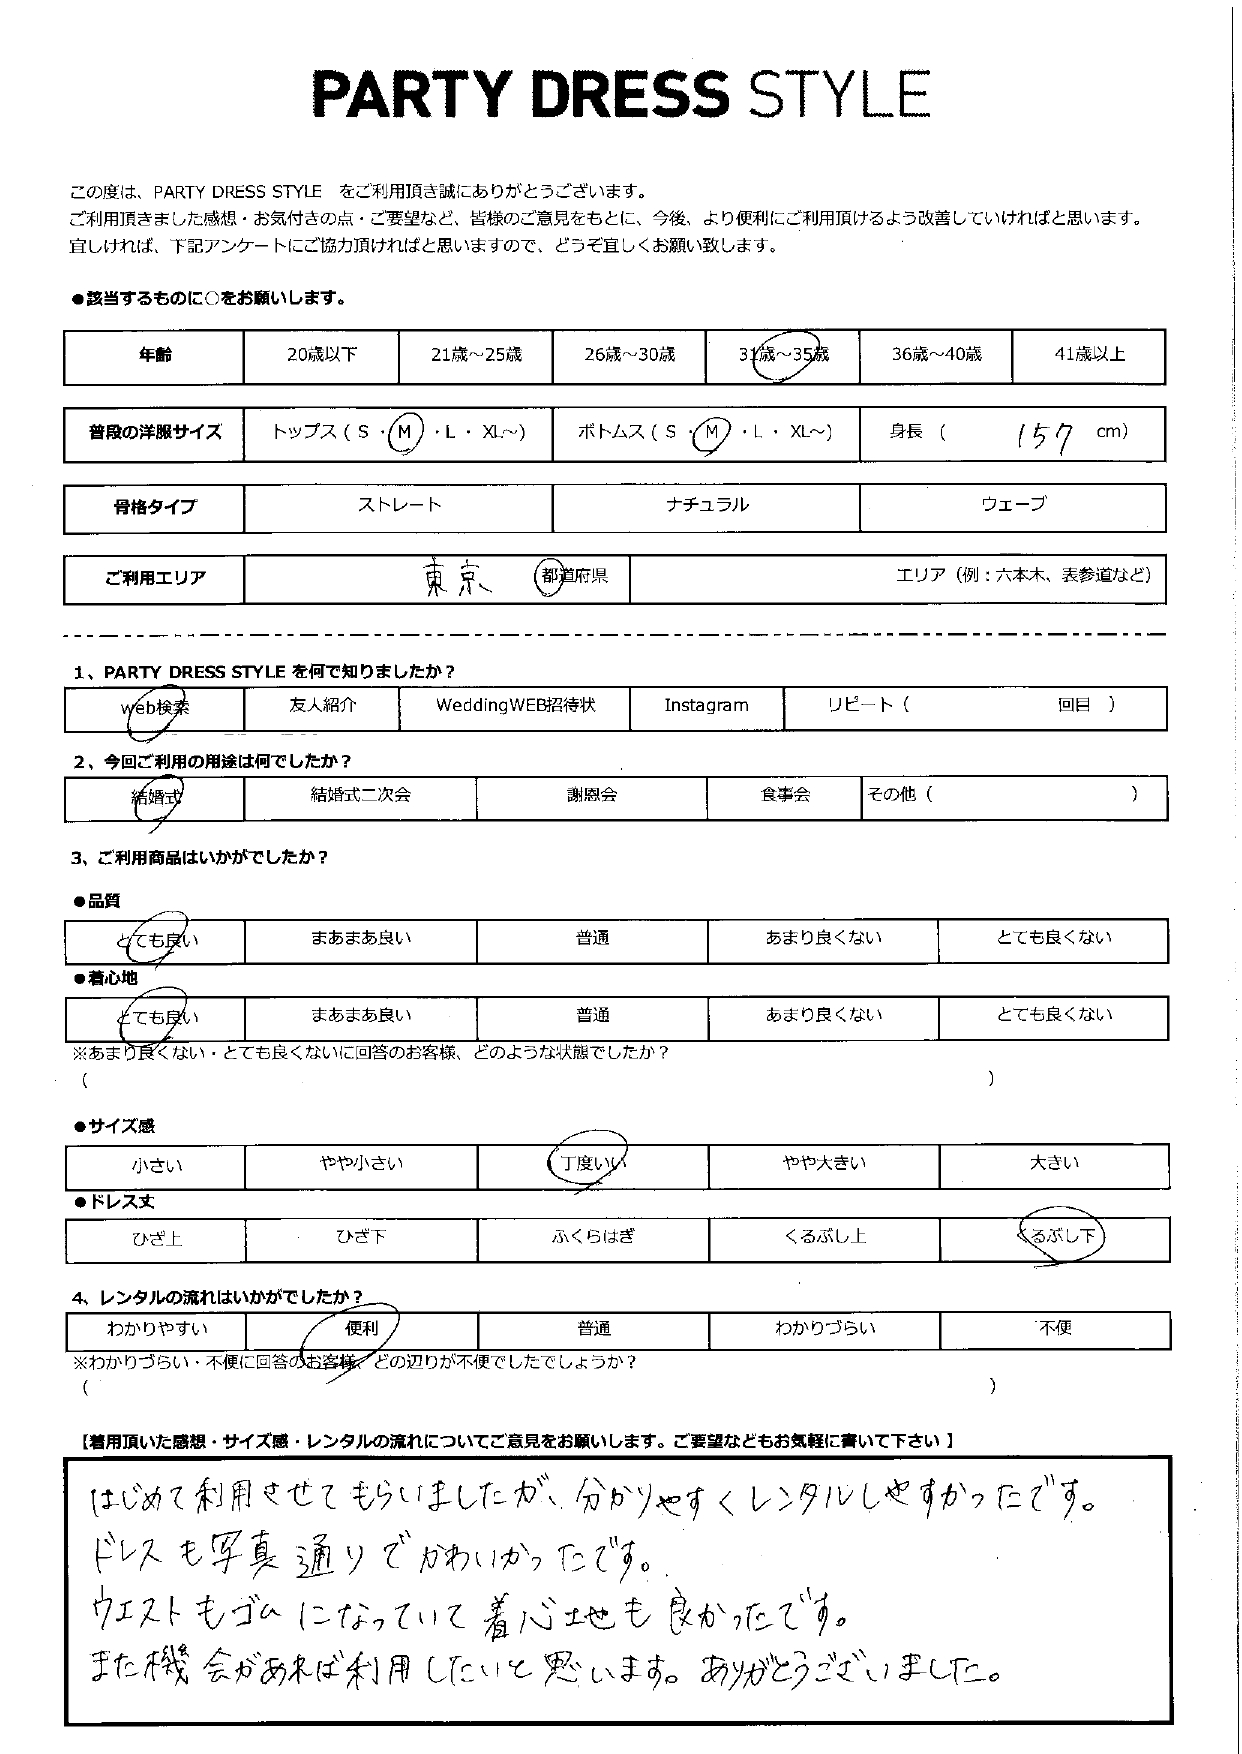 PARTY DRESS STYLE
この度は、PARTY DRESS STYLE をご利用頂き誠にありがとうございます。
ご利用頂きました感想・お気付きの点・ご要望など、皆様のご意見をもとに、今後、より便利にご利用頂けるよう改善していければと思います。
宜しければ、下記アンケートにご協力頂ければと思いますので、どうぞ宜しくお願い致します。
●該当するものに○をお願いします。
年齢 20歳以下 21歳～25歳 26歳～30歳 31歳～35歳 36歳～40歳 41歳以上
普段の洋服サイズ トップス ( S ・ M ・ L ・ XL～) ボトムス ( S ・ M ・ L ・ XL～) 身長 ( 157 cm)
骨格タイプ ストレート ナチュラル ウェーブ
ご利用エリア 東京 都道府県 エリア（例：六本木、表参道など）
1、PARTY DRESS STYLE を何で知りましたか？
web検索 友人紹介 WeddingWEB招待状 Instagram リピート（ 回目 ）
2、今回ご利用の用途は何でしたか？
結婚式 結婚式二次会 謝恩会 食事会 その他（ ）
3、ご利用商品はいかがでしたか？
●品質
とても良い まあまあ良い 普通 あまり良くない とても良くない
●着心地
とても良い まあまあ良い 普通 あまり良くない とても良くない
※あまり良くない・とても良くないに回答のお客様、どのような状態でしたか？
（ ）
●サイズ感
小さい やや小さい 丁度いい やや大きい 大きい
●ドレス丈
ひざ上 ひざ下 ふくらはぎ くるぶし上 くるぶし下
4、レンタルの流れはいかがでしたか？
わかりやすい 便利 普通 わかりづらい 不便
※わかりづらい・不便に回答のお客様、どの辺りが不便でしたでしょうか？
（ ）
【着用頂いた感想・サイズ感・レンタルの流れについてご意見をお願いします。ご要望などもお気軽に書いて下さい 】
はじめて利用させてもらいましたが、分かりやすくレンタルしやすかったです。
ドレスも写真通りでかわいかったです。
ウエストもゴムになっていて着心地も良かったです。
また機会があれば利用したいと思います。ありがとうございました。